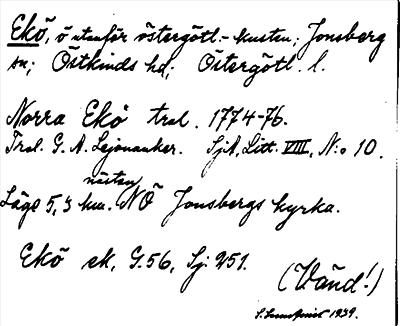 Ekö, ö utanför östergötl.-kusten; Jonsberg
sn; Östkinds hd; Östergötl. l.
Norra Ekö tral. 1774-76.
Tral. G. A. Lejonanker. SjA, Litt. VIII, N:o 10.
nästan
Läge 5,3 km. NÖ Jonsbergs kyrka.
Ekö ek, G.56, Sj. 251.
(Vänd!)
1939.